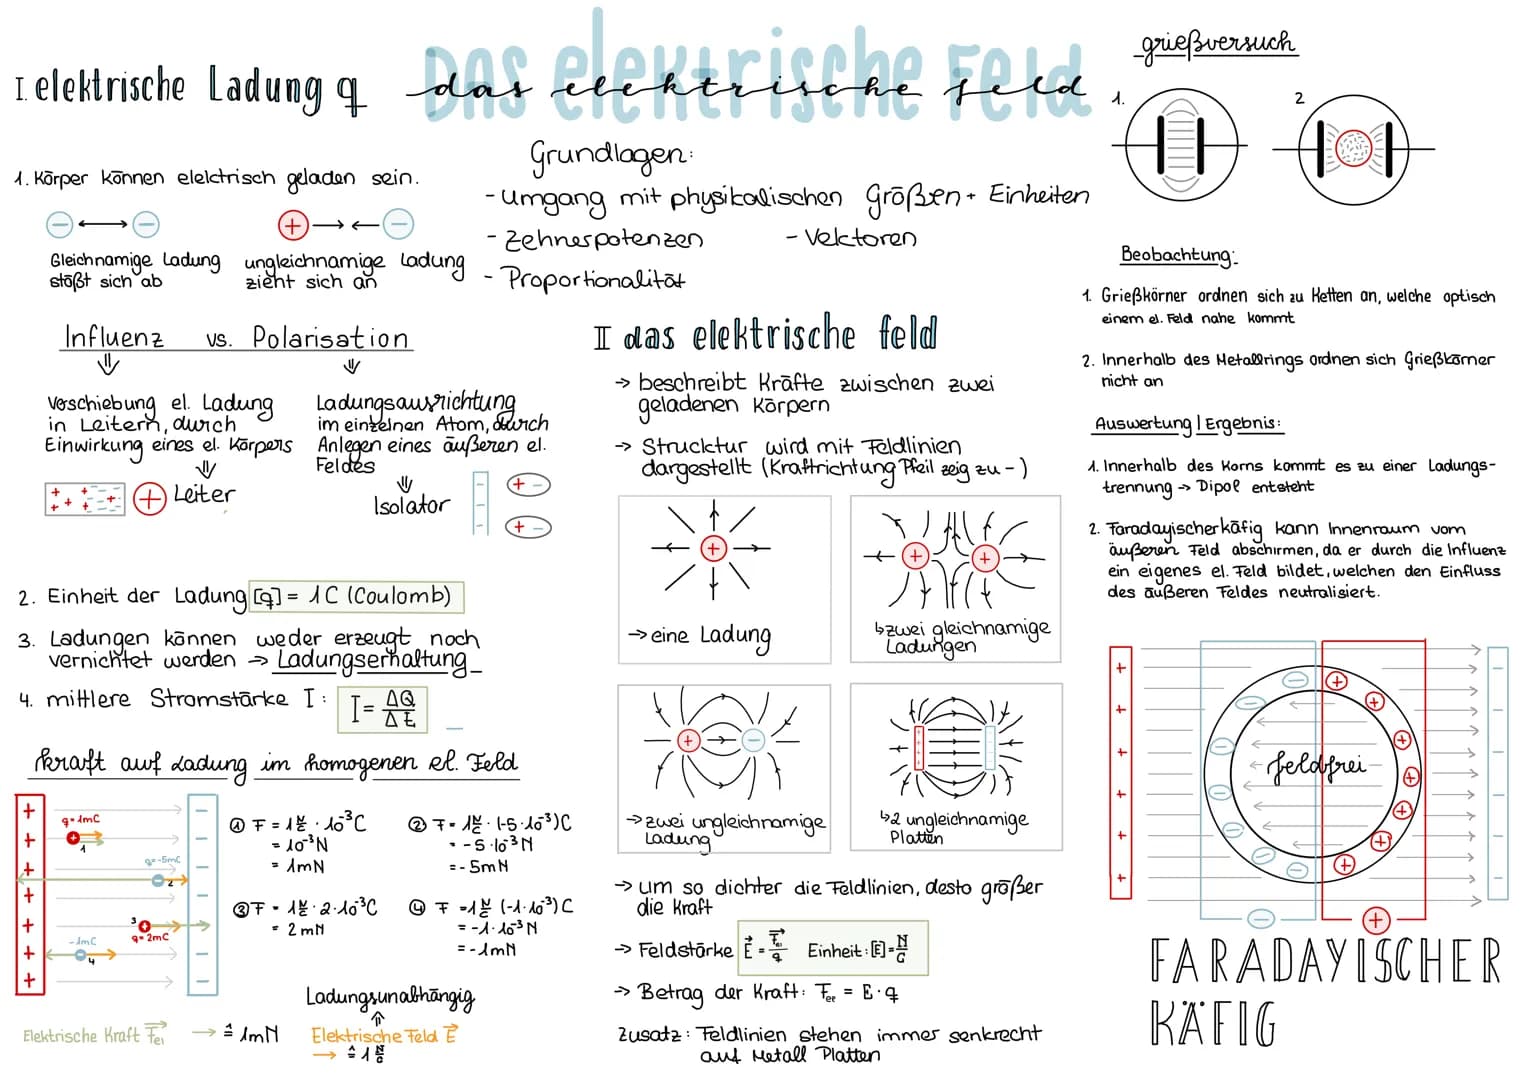 Das elektrische Feld
das elektrische Feld
I. elektrische Ladung q
1. Körper können elelctrisch geladen sein.
Gleichnamige Ladung
stößt sich ab
ungleichnamige Ladung
zieht sich an
Influenz vs. Polarisation
Verschiebung el. Ladung
in Leitern, durch
Einwirkung eines el. Körpers
Leiter
Ladungsausrichtung
im einzelnen Atom, durch
Anlegen eines äußeren el.
Feldes
Isolator
2. Einheit der Ladung [q] = 1C (Coulomb)
3. Ladungen können weder erzeugt noch
vernichtet werden → Ladungserhaltung
4. mittlere Stromstärke I: I = ΔQ/Δt
Kraft auf Ladung im homogenen el. Feld
q=1mC
1
q=-5mC
2
3
q=2mC
-1mC
4
① F = 1 N/C · 10⁻³C
= 10⁻³N
= 1mN
② F = 1 N/C · (-5·10⁻³)C
= -5·10⁻³N
= -5mN
③ F = 1 N/C · 2·10⁻³C
= 2mN
④ F = 1 N/C (-1·10⁻³)C
= -1·10⁻³N
= -1mN
Elektrische Kraft F⃗el → ≙ 1mN
Ladungsunabhängig
⇑
Elektrische Feld E⃗
→ ≙ 1 N/C
Grundlagen:
- Umgang mit physikalischen Größen + Einheiten
- Zehnerpotenzen - Vektoren
- Proportionalität
II das elektrische feld
→ beschreibt Kräfte zwischen zwei
geladenen Körpern
→ Strucktur wird mit Feldlinien
dargestellt (Kraftrichtung Pfeil zeig zu -)
→ eine Ladung
↳ zwei gleichnamige
Ladungen
→ zwei ungleichnamige
Ladung
↳ 2 ungleichnamige
Platten
→ um so dichter die Feldlinien, desto größer
die Kraft
→ Feldstärke E⃗ = F⃗el/q Einheit: [E] = N/C
→ Betrag der Kraft: Fel = E · q
Zusatz: Feldlinien stehen immer senkrecht
auf Metall Platten
grießversuch
1. 2
Beobachtung:
1. Grießkörner ordnen sich zu Ketten an, welche optisch
einem el. Feld nahe kommt
2. Innerhalb des Metallrings ordnen sich Grießkörner
nicht an
Auswertung | Ergebnis:
1. Innerhalb des Korns kommt es zu einer Ladungs-
trennung → Dipol entsteht
2. Faradayischer käfig kann Innenraum vom
äußeren Feld abschirmen, da er durch die Influenz
ein eigenes el. Feld bildet, welchen den Einfluss
des äußeren Feldes neutralisiert.
feldfrei
FARADAYISCHER
KÄFIG